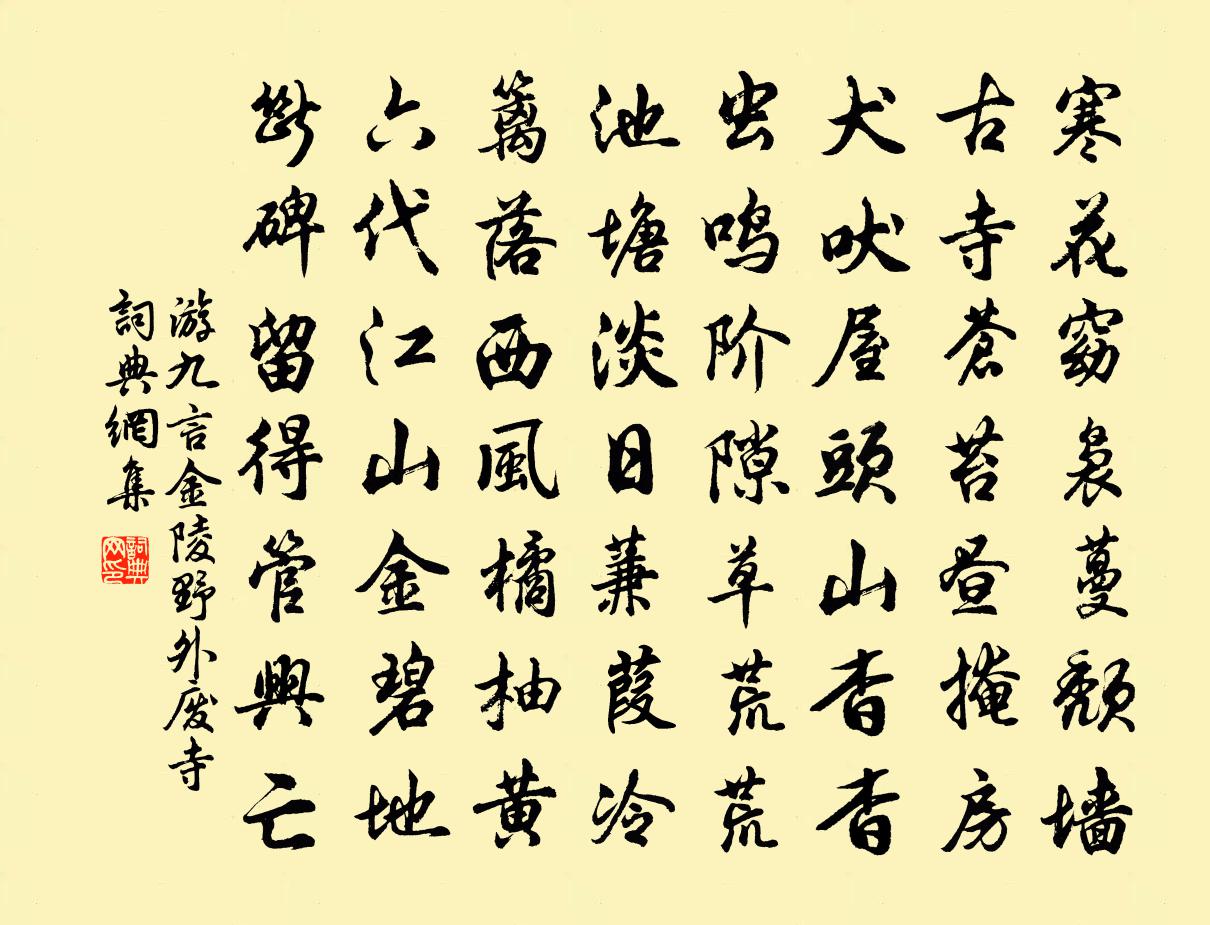 寒花窈袅蔓颓墙
古寺蒼苔昼掩房
犬吠屋頭山杳杳
虫鸣阶隙草荒荒
池塘淡日蒹葭冷
篱落西風橘柚黄
六代江山金碧地
断碑留得管興亡
游九言金陵野外废寺
詞典網集
詞典网印